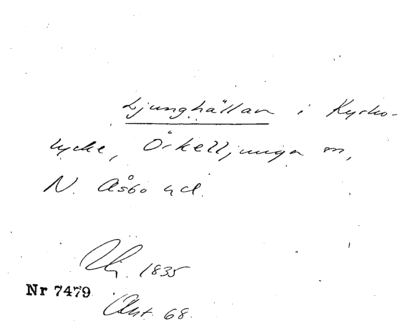 Ljunghällan i Kyrko-
lycke, Örkelljunga sn,
N. Åsbo hd.
1835
Nr 7479
Akt. 68.